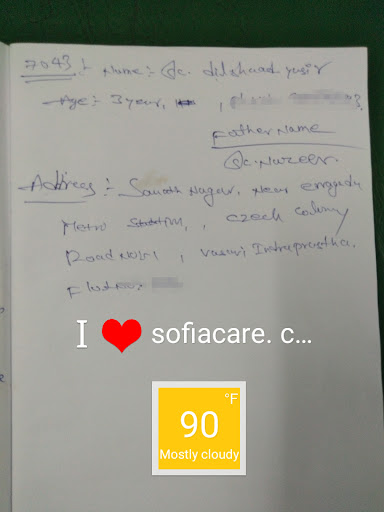 7043 :- Name :- Sc. dilshaad yusir
Age :- 3 year,
Father Name
Sc. Nazeer.
Address :- Sanath Nagar, Near erragadu
Metro, czech colony
Road No: 1, vasavi Intraprastha.
I ❤ sofiacare. c...
°F
90
Mostly cloudy